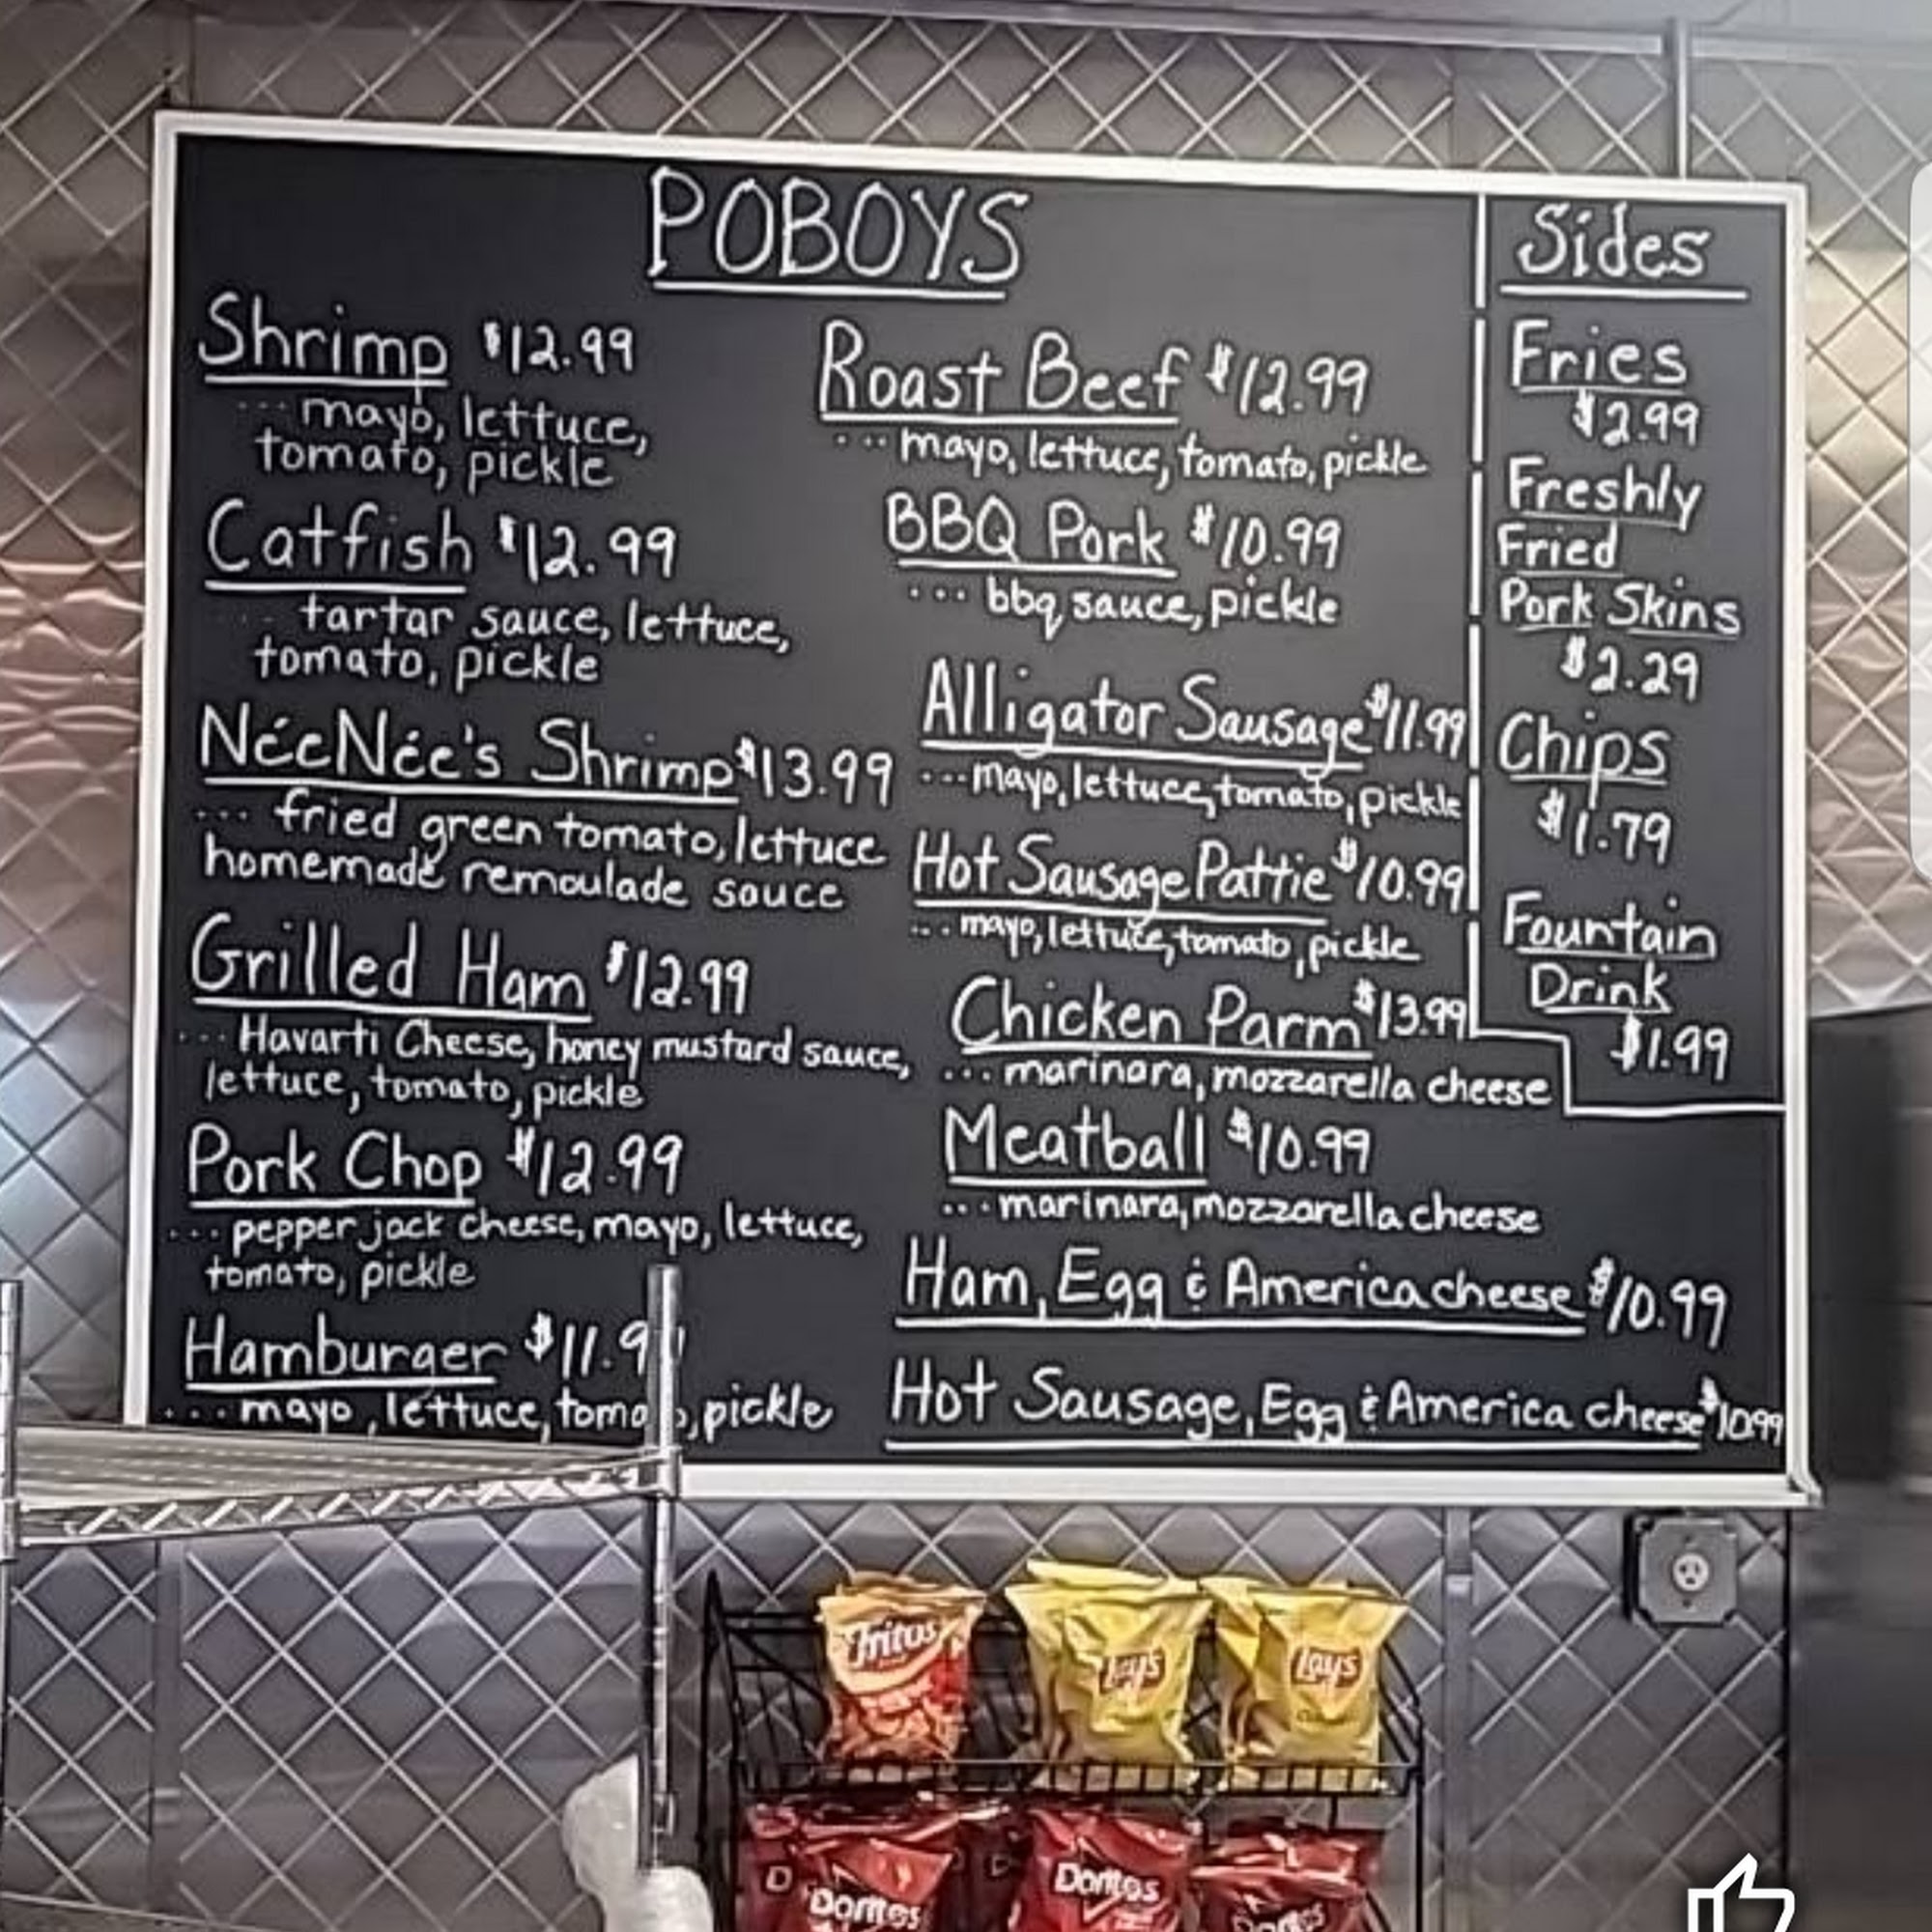 POBOYS
Shrimp $12.99
... mayo, lettuce,
tomato, pickle
Catfish $12.99
... tartar sauce, lettuce,
tomato, pickle
NéeNée's Shrimp $13.99
... fried green tomato, lettuce
homemade remoulade sauce
Grilled Ham $12.99
... Havarti Cheese, honey mustard sauce,
lettuce, tomato, pickle
Pork Chop $12.99
... pepper jack cheese, mayo, lettuce,
tomato, pickle
Hamburger
... mayo, lettuce, pickle
Roast Beef $12.99
... mayo, lettuce, tomato, pickle
BBQ Pork $10.99
... bbq sauce, pickle
Alligator Sausage $11.99
... mayo, lettuce, tomato, pickle
Hot Sausage Pattie $10.99
... mayo, lettuce, tomato, pickle
Chicken Parm $13.99
... marinara, mozzarella cheese
Meatball $10.99
... marinara, mozzarella cheese
Ham, Egg & America cheese $10.99
Hot Sausage, Egg & America cheese $10.99
Sides
Fries
$2.99
Freshly
Fried
Pork Skins
$2.29
Chips
$1.79
Fountain
Drink
$1.99
Fritos
Lay's
Lay's
Doritos
Doritos
Doritos